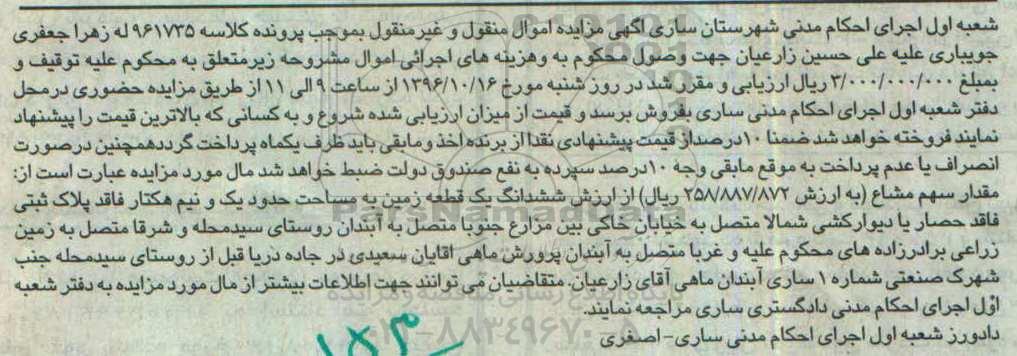 شعبه اول اجرای احکام مدنی شهرستان ساری آگهی مزایده اموال منقول و غیرمنقول بموجب پرونده کلاسه ۹۶۱۷۳۵ له زهرا جعفری
جویباری علیه علی حسین زارعیان جهت وصول محکوم به وهزینه های اجرائی اموال مشروحه زیرمتعلق به محکوم علیه توقیف و
بمبلغ ۳/۰۰۰/۰۰۰/۰۰۰ ریال ارزیابی و مقرر شد در روز شنبه مورخ ۱۳۹۶/۱۰/۱۶ از ساعت ۹ الی ۱۱ از طریق مزایده حضوری درمحل
دفتر شعبه اول اجرای احکام مدنی ساری بفروش برسد و قیمت از میزان ارزیابی شده شروع و به کسانی که بالاترین قیمت را پیشنهاد
نمایند فروخته خواهد شد ضمنا ۱۰درصداز قیمت پیشنهادی نقدا از برنده اخذ ومابقی باید ظرف یکماه پرداخت گرددهمچنین درصورت
انصراف یا عدم پرداخت به موقع مابقی وجه ۱۰درصد سپرده به نفع صندوق دولت ضبط خواهد شد مال مورد مزایده عبارت است از:
مقدار سهم مشاع (به ارزش ۲۵۸/۸۸۷/۸۷۲ ریال) از ارزش ششدانگ یک قطعه زمین به مساحت حدود یک و نیم هکتار فاقد پلاک ثبتی
فاقد حصار یا دیوارکشی شمالا متصل به خیابان خاکی بین مزارع جنوبا متصل به آبندان روستای سیدمحله و شرقا متصل به زمین
زراعی برادرزاده های محکوم علیه و غربا متصل به آبندان پرورش ماهی آقایان سعیدی در جاده دریا قبل از روستای سیدمحله جنب
شهرک صنعتی شماره ۱ ساری آبندان ماهی آقای زارعیان. متقاضیان می توانند جهت اطلاعات بیشتر از مال مورد مزایده به دفتر شعبه
اول اجرای احکام مدنی دادگستری ساری مراجعه نمایند.
دادورز شعبه اول اجرای احکام مدنی ساری- اصغری
ParsNamadData
پایگاه اطلاع رسانی مناقصه و مزایده
۰۲۱-۸۸۳۴۹۶۷۰-۵